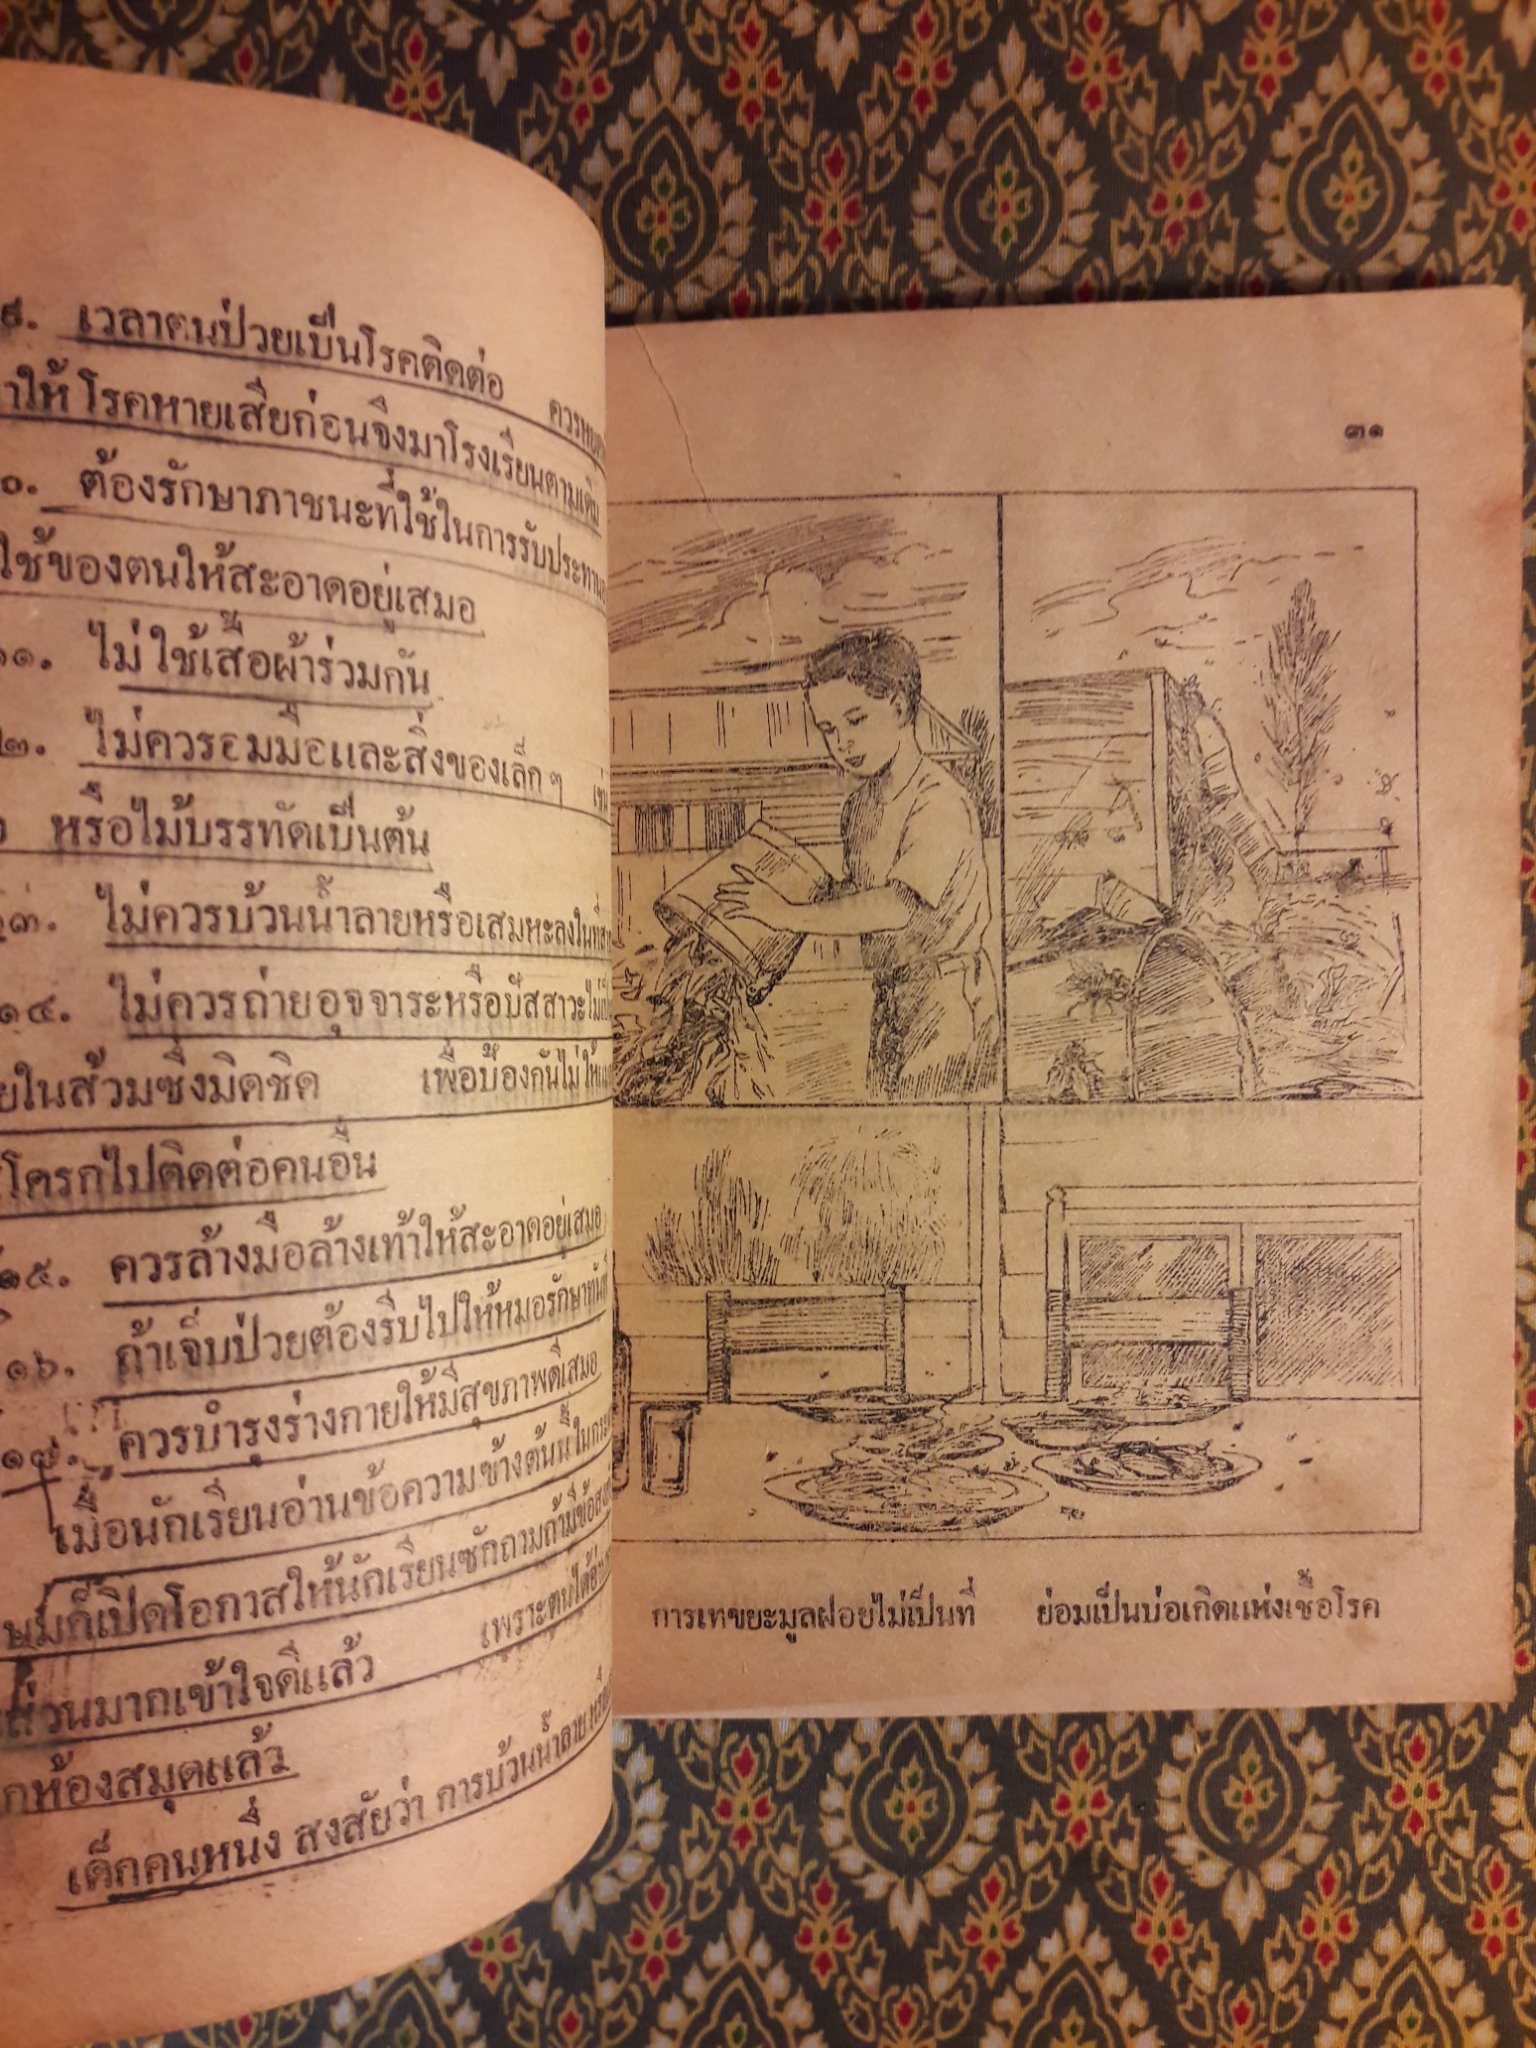 เวลาตนป่วยเป็นโรคติดต่อ
ให้โรคหายเสียก่อนจึงมาโรงเรียนตามเดิม
๐. ต้องรักษาภาชนะที่ใช้ในการรับประทาน
ใช้ของตนให้สะอาดอยู่เสมอ
๑. ไม่ใช้เสื้อผ้าร่วมกัน
๒. ไม่ควรอมมือและสิ่งของเล็ก ๆ เช่น
หรือไม้บรรทัดเป็นต้น
๓. ไม่ควรบ้วนน้ำลายหรือเสมหะลงในที่
๑๔. ไม่ควรถ่ายอุจจาระหรือปัสสาวะไม่เป็น
ในส้วมซึ่งมิดชิด เพื่อป้องกันไม่ให้
โครกไปติดต่อคนอื่น
๑๕. ควรล้างมือล้างเท้าให้สะอาดอยู่เสมอ
๑๖. ถ้าเจ็บป่วยต้องรีบไปให้หมอรักษาทันที
๑๗. ควรบำรุงร่างกายให้มีสุขภาพดีเสมอ
เมื่อนักเรียนอ่านข้อความข้างต้นนี้ใน
ก็เปิดโอกาสให้นักเรียนซักถามถ้ามีข้อ
ส่วนมากเข้าใจดีแล้ว เพราะตนได้
ห้องสมุดแล้ว
เด็กคนหนึ่ง สงสัยว่า การบ้วนน้ำลาย
๓๑
การเทขยะมูลฝอยไม่เป็นที่ ย่อมเป็นบ่อเกิดแห่งเชื้อโรค